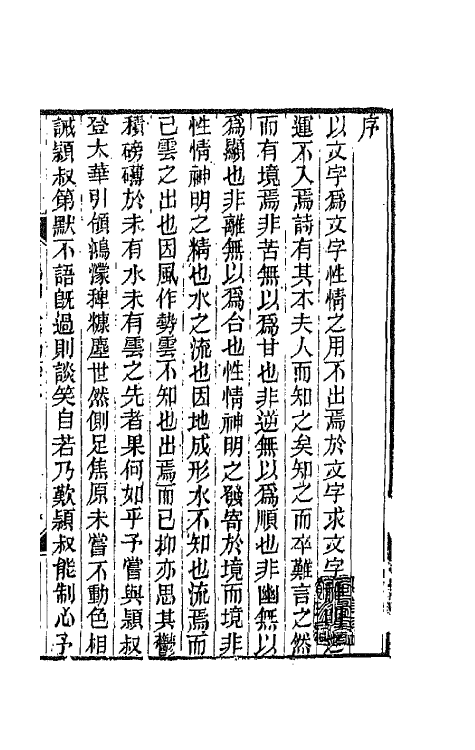 序
以文字爲文字性情之用不出焉於文字求文字
運不入焉詩有其本夫人而知之矣知之而卒難言之然
而有境焉非苦無以爲甘也非逆無以爲順也非幽無以
爲顯也非離無以爲合也性情神明之發寄於境而境非
性情神明之精也水之流也因地成形水不知也流焉而
已雲之出也因風作勢雲不知也出焉而已抑亦思其鬱
積磅礴於未有水未有雲之先者果何如乎予嘗與頴叔
登太華引領鴻濛稗糠塵世然側足焦原未嘗不動色相
誡頴叔第默不語旣過則談笑自若乃歎頴叔能制心予